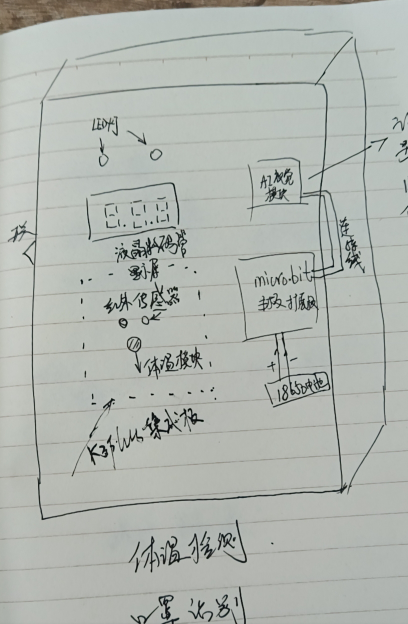 LED灯
8.8.8
液晶数码管
显示屏
红外传感器
体温模块
集成板
AI视觉
模块
连接线
micro:bit
主板扩展板
+ -
18650电池
体温检测
口罩识别